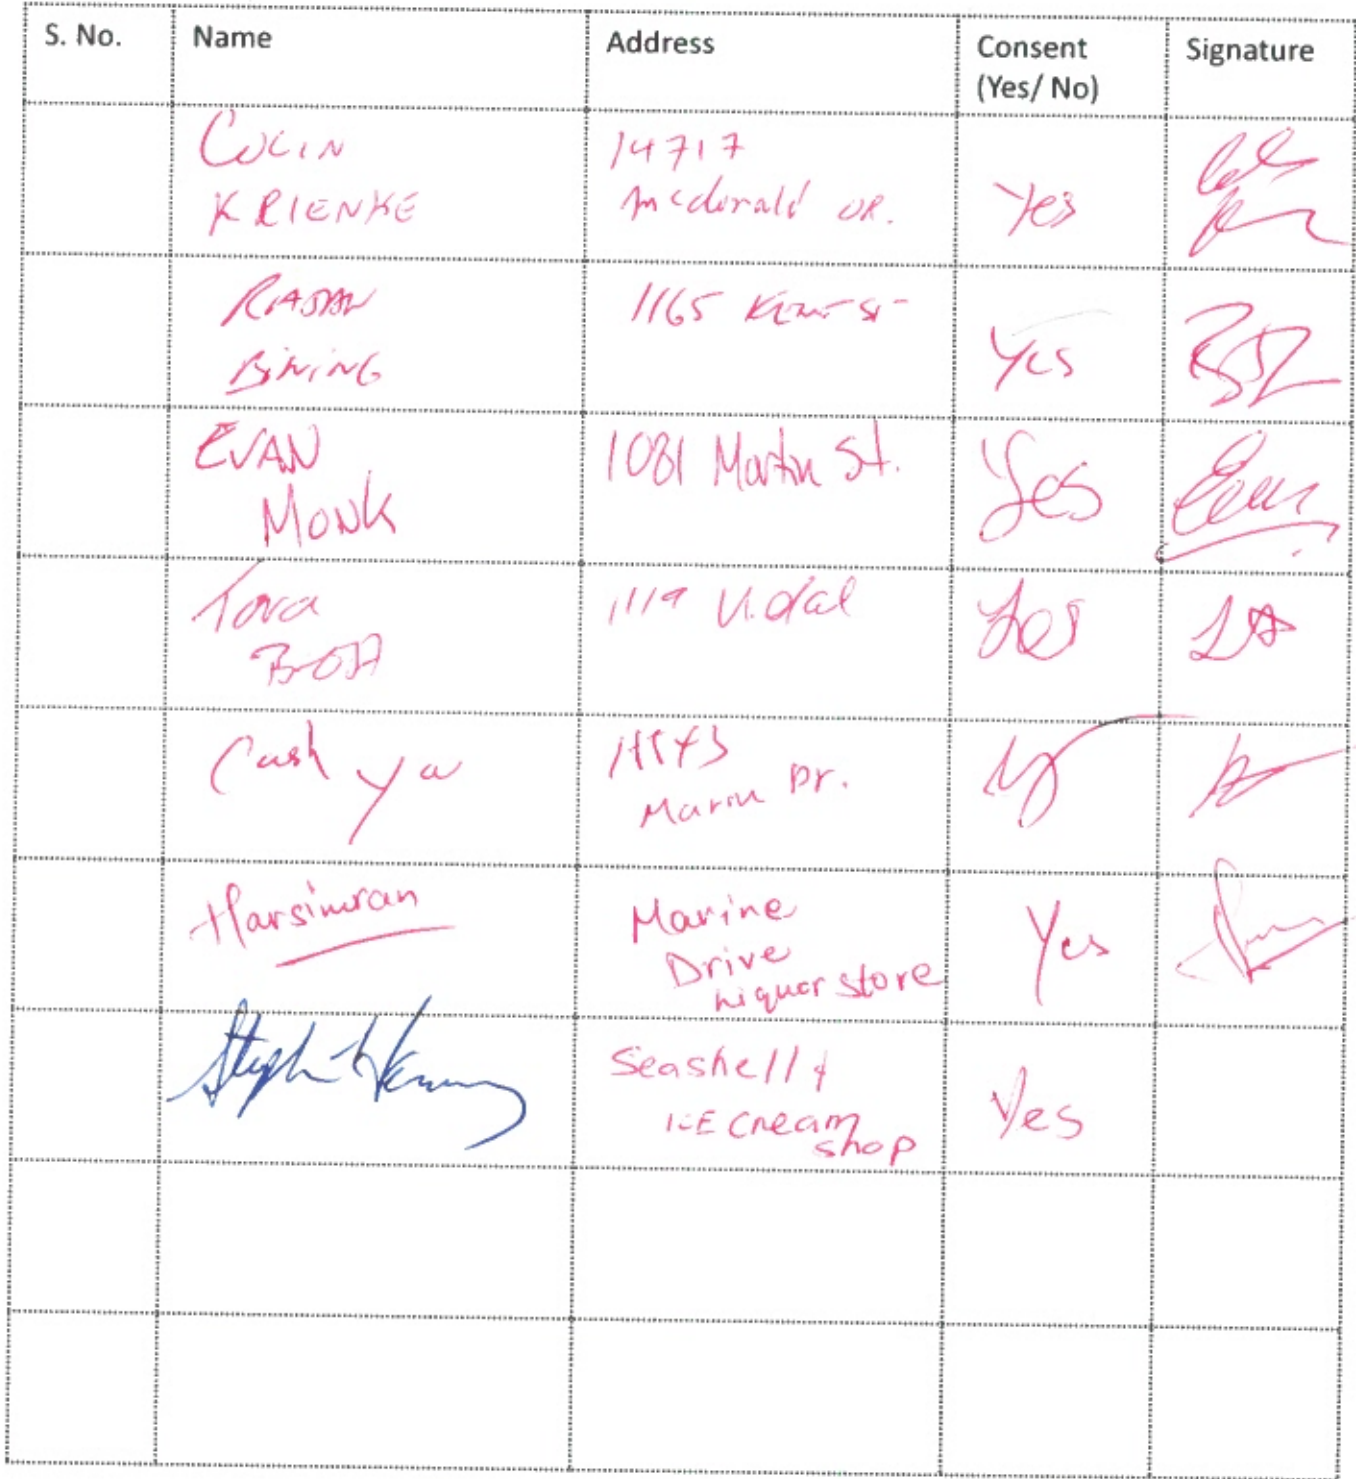 S. No. Name Address Consent (Yes/ No) Signature
COLIN
KRIENKE
14717
mcdonald DR.
Yes
1165 KENT ST
Yes
EVAN
MONK
1081 Martin St.
Yes
Tara
1119 Vidal
Yes
Cash
Dr.
Harsimran
Marine
Drive
Liquor store
Yes
Seashell
ICE Cream
shop
Yes